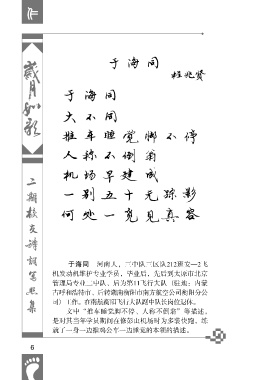 作
岁月如歌
二期校友诗词书画集
于海同
程兆贤
于海同
大不同
推车睡觉脚不停
人称不倒翁
机场早建成
一别五十无踪影
何处一觅见真容
于海同 河南人，三中队三区队212班安—2飞
机发动机维护专业学员，毕业后，先后到太原市北京
管理局专业二中队，后为第11飞行大队（驻地：内蒙
古呼和浩特市，后转湖南衡阳市南方航空公司衡阳分公
司）工作。在南航衡阳飞行大队副中队长岗位退休。
文中“推车睡觉脚不停、人称不倒翁”等描述，
是时其当年学员期间在修彭山机场时为多装快跑，练
就了一身一边推鸡公车一边睡觉的本领的描述。
6